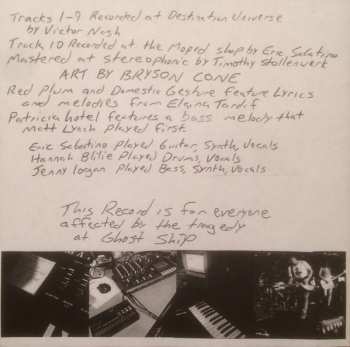 Tracks 1-9 Recorded at Destination Universe
by Victor Nash
Track 10 Recorded at the Moped shop by Eric Sabatino
Mastered at stereophonic by Timothy Stollenwerk
ART BY BRYSON CONE
Red Plum and Domestic Gesture feature Lyrics
and melodies from Elaina Tardif
Patricia hotel features a bass melody that
Matt Lynch played first.
Eric Sabatino Played Guitar, Synth, Vocals
Hannah Blilie Played Drums, Vocals
Jenny Logan Played Bass, Synth, Vocals
This Record is for everyone
affected by the tragedy
at Ghost Ship